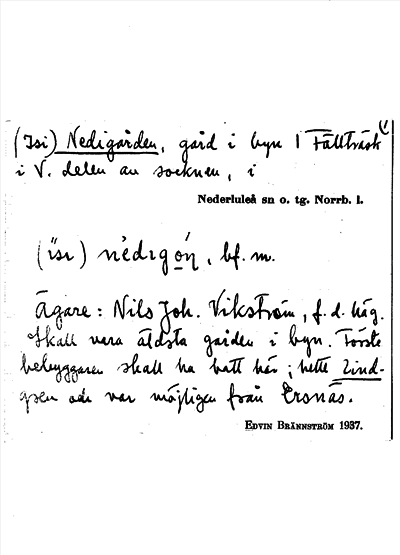 (Isi) Nedigården, gård i byn 1 Fällträsk 1)
i V. delen av socknen, i
Nederluleå sn o. tg. Norrb. l.
(ìsı) nèdıgǫ́n, bf. m.
Ägare: Nils Joh. Vikström, f. d. häg.
Skall vara äldsta gården i byn. Förste
bebyggaren skall ha hatt här; hette Lind-
gren och var möjligen från Ersnäs.
EDVIN BRÄNNSTRÖM 1937.